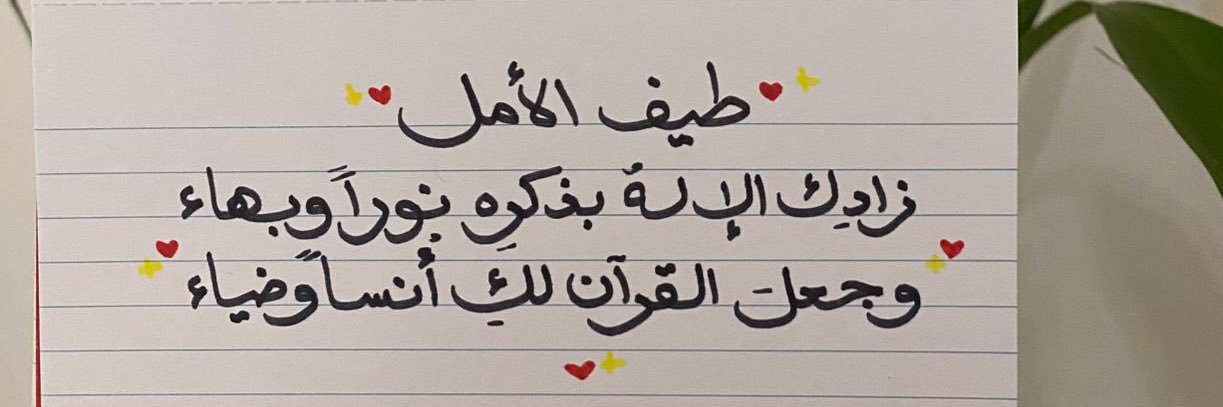 طيف الأمل
زادِك الإلهُ بذكرِه نوراً وبهاء
وجعلَ القرآن لكِ أُنساً وضياء